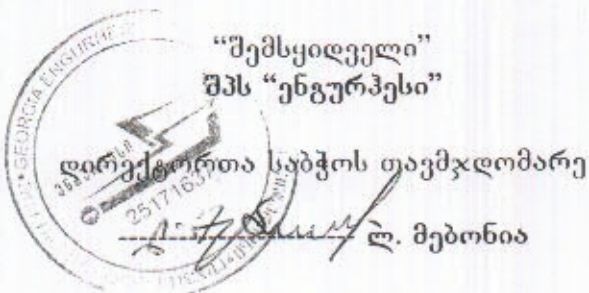 “შემსყიდველი”
შპს “ენგურჰესი”
დირექტორთა საბჭოს თავმჯდომარე
ლ. მებონია
GEORGIA ENGURHE